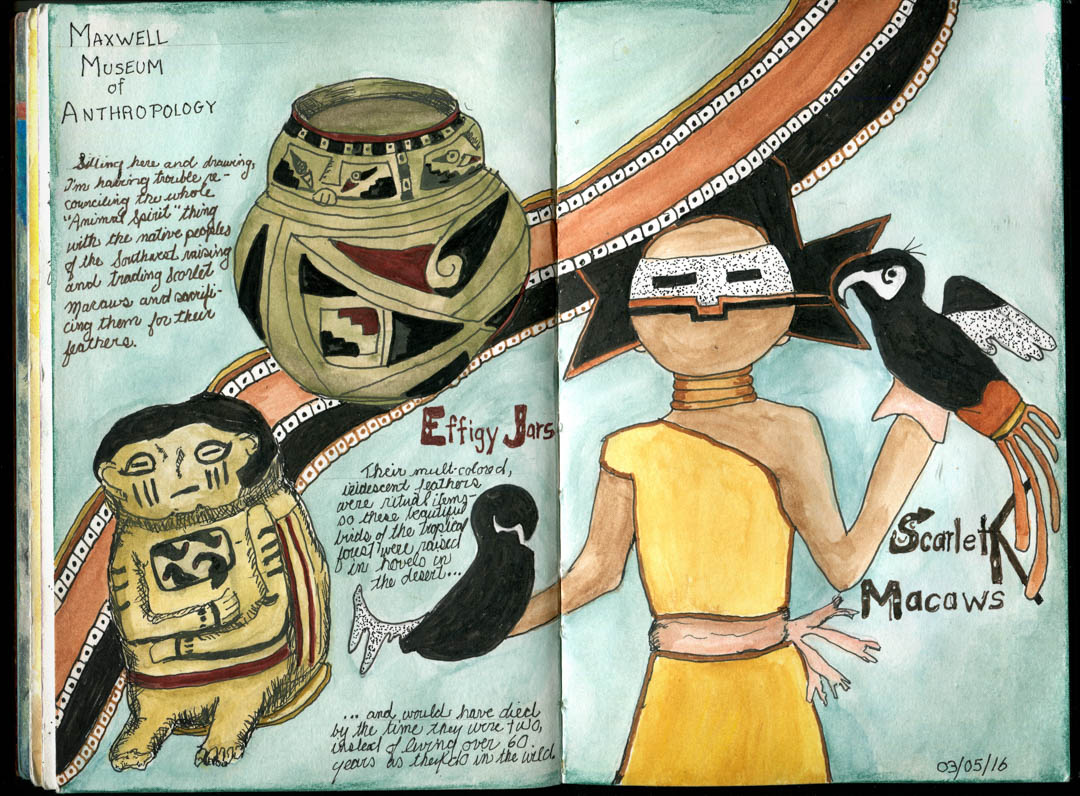 MAXWELL
MUSEUM
of
ANTHROPOLOGY
Sitting here and drawing,
I'm having trouble re-
counciling the whole
"Animal Spirit" thing
with the native peoples
of the Southwest raising
and trading Scarlet
Macaws and sacrifi-
cing them for their
feathers.
Effigy Jars
Their mult-colored,
iridescent feathers
were ritual items-
so these beautiful
birds of the tropical
forest were raised
in hovels in
the desert...
... and would have died
by the time they were two,
instead of living over 60
years as they do in the wild.
Scarlet
Macaws
03/05/16